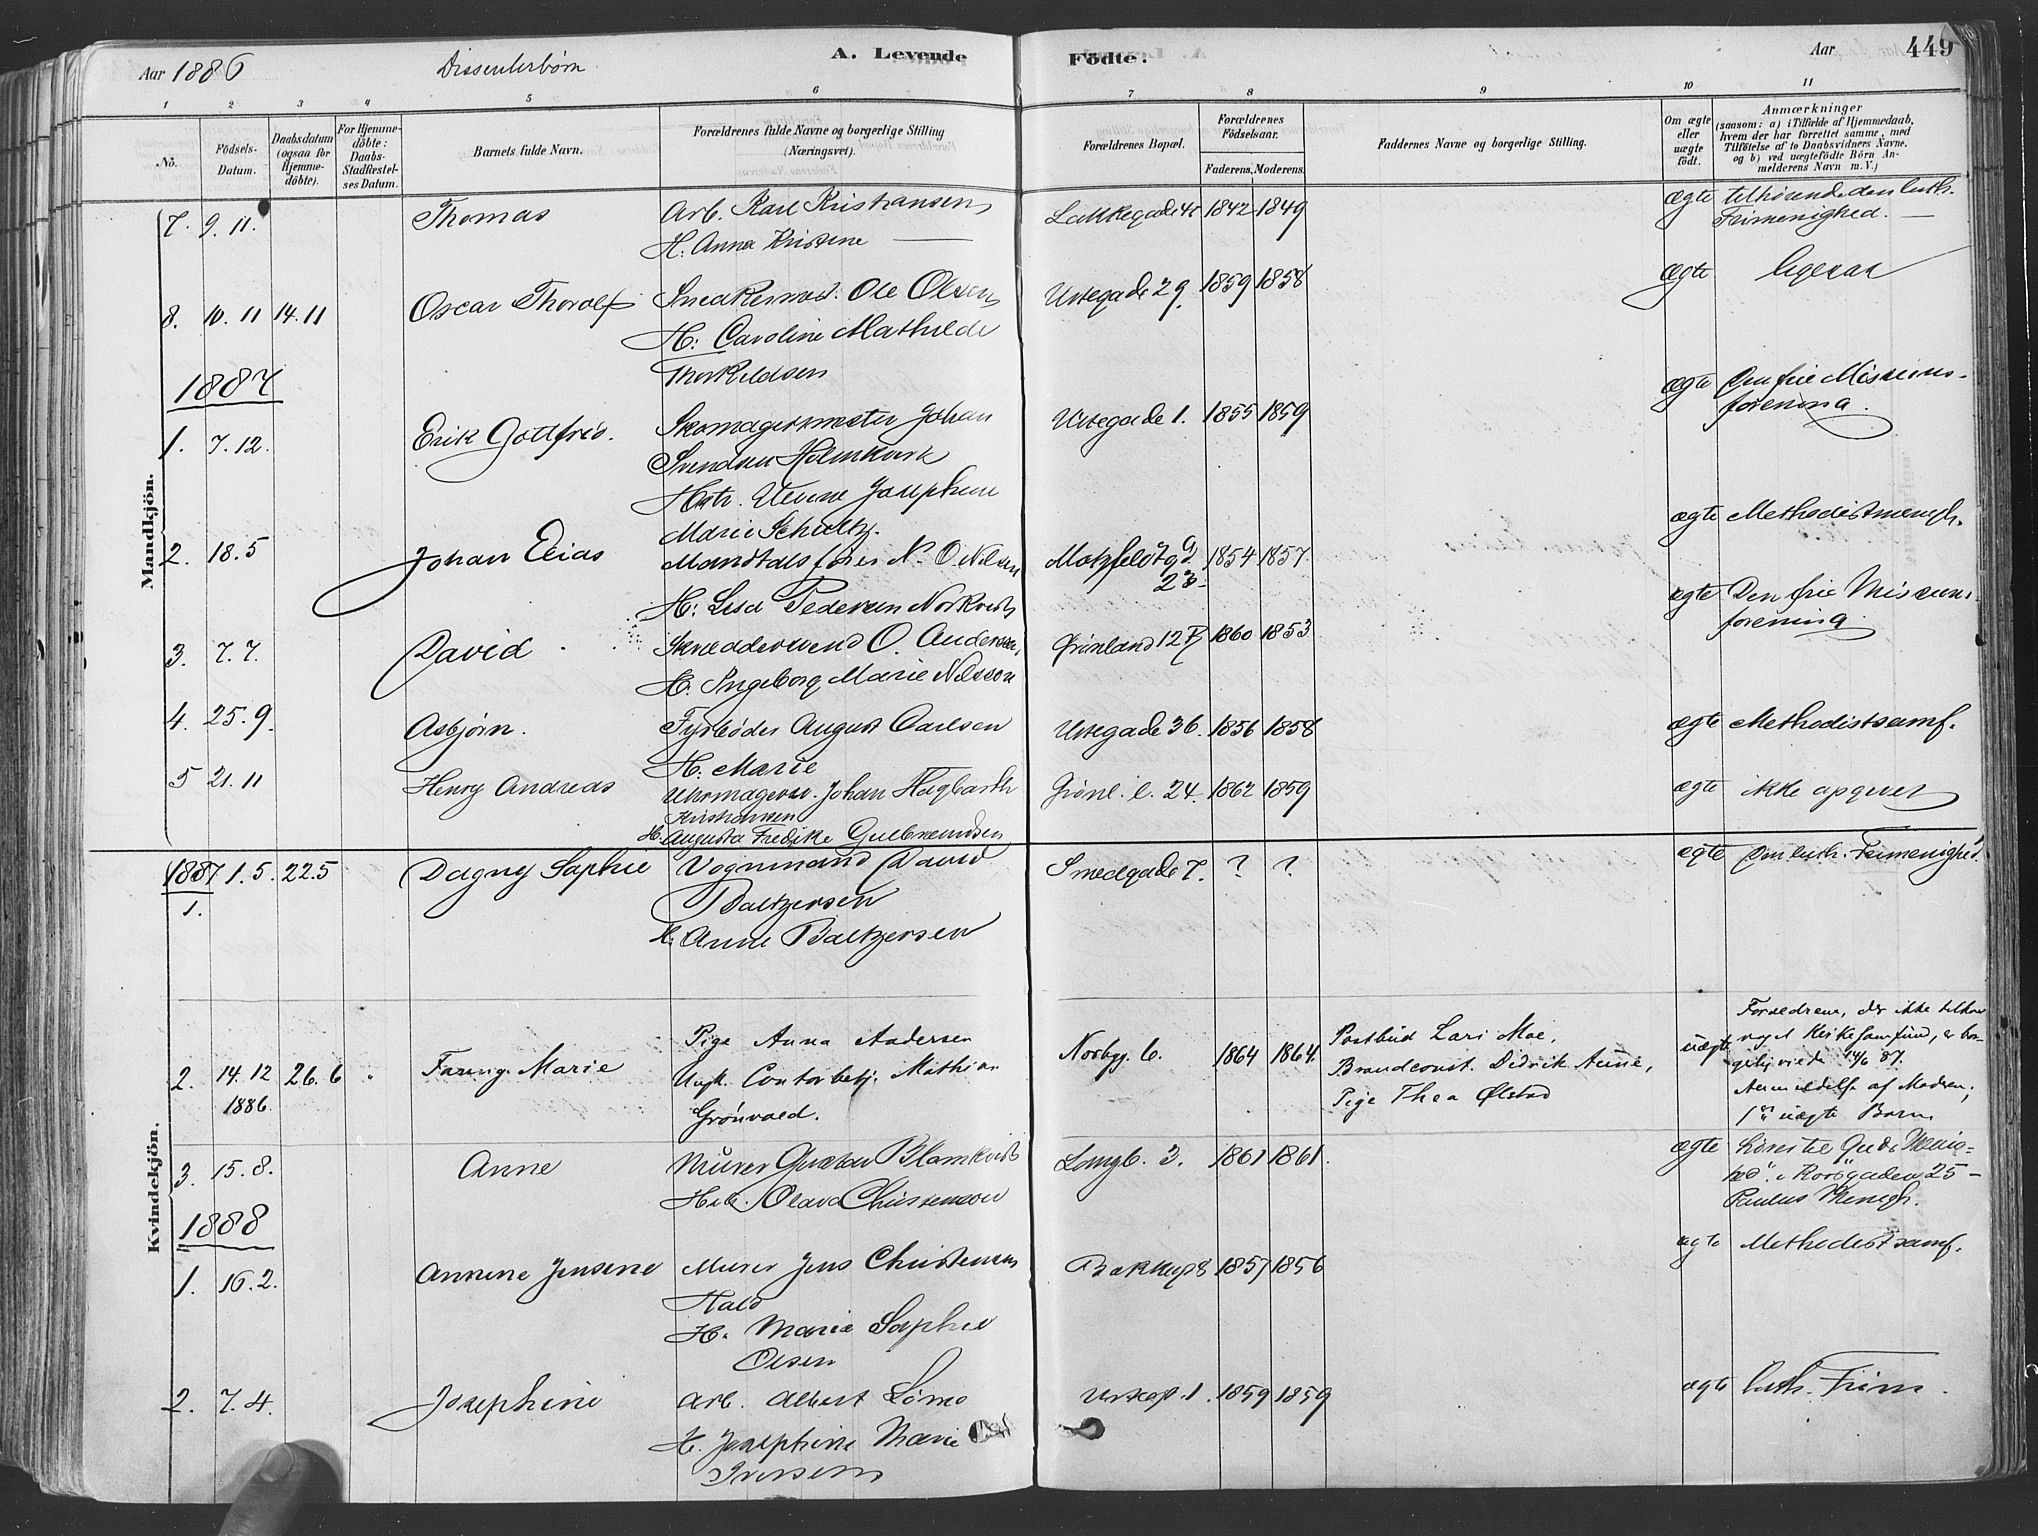 Aar 1886 Dissenterbørn A. Levende Födte. Aar 449
1 2 3 4 5 6 7 8 9 10 11
No.
Födsels-Datum.
Daabsdatum (ogsaa for Hjemmedöbte).
For Hjemmedöbte: Daabs-Stadfæstelses Datum.
Barnets fulde Navn.
Forældrenes fulde Navne og borgerlige Stilling (Næringsvei).
Forældrenes Bopæl.
Forældrenes Födselsaar.
Faderens. Moderens.
Faddernes Navne og borgerlige Stilling.
Om ægte eller uægte födt.
Anmærkninger
(saasom: a) i Tilfælde af Hjemmedaab, hvem der har forrettet samme, med Tilföielse af to Daabsvidners Navne, og b) ved uægtefödte Börn Anmelderens Navn m. V.)
Mandkjön.
7. 9. 11. Thomas Arb. Karl Kristiansen Lakkegade 41 1842 1849 ægte tilhørende den luth.
H. Anna Kristine — Frimenighed. —
8. 10. 11 14. 11 Oscar Thorolf Snedkermest. Ole Olsen Urtegade 29. 1859 1858 ægte ligesaa
H: Caroline Mathilde
Thorkildsen
1887
1. 7. 12. Erik Gottfrid. Skomagermester Johan Urtegade 1. 1855 1859 ægte Den frie Missions-
Svendsen Holmkvist forening.
Hstr. Josephine
Marie Schultz.
2. 18. 5 Johan Elias Mandtalsfører N. O. Nilsen Motzfeldtsg 1854 1857. ægte Methodistmengh.
23.
H: Lisa Pedersen Norkvist
3. 7. 7. David Skræddersvend O. Andersen, Grønland 12 1860 1853 ægte Den frie Missions-
H. Ingeborg Marie Nilsson forening.
4. 25. 9. Asbjørn. Fyrbøder August Carlsen Urtegade 36. 1856 1858 ægte Methodistsamf.
H. Marie
5 21. 11 Henry Andreas Uhrmagersv. Johan Hagbarth Grønl. l. 24. 1862 1859 ægte ikke opgivet
Kristiansen
H. Augusta Fredrike Gulbrandsen
Kvindekjön.
1887
1. 1. 5. 22.5 Dagny Sophie Vognmand David Smedgade 7. ? ? ægte Den luth. Frimenighed.
Baltzersen
H. Anne Baltzersen
2. 14. 12 26. 6 Fanny Marie Pige Anna Andersen Norbyg. 6. 1864 1864. Postbud Lars Moe, uægte Forældrene, der ikke tilhører
1886. Ungk. Contorbetj. Mathias Brandconst. Didrik Aune, noget Kirkesamfund, er bor-
Grönvold. Pige Thea Ølstad gerlig viede 14/6 87.
Anmeldelse af Moderen,
1ste uægte Barn.
3. 15. 8. Anne Murer Gustav Blomkvist Langg. 3. 1861 1861. ægte Guds Menig-
Hst. Olava Christensen hed i Korsgaden 25 —
Paulus Menigh.
1888
1. 16. 2. Annine Jensine Murer Jens Christensen 1857 1856 ægte Methodistsamf.
Hald
H. Marie Sophie
Olsen
2. 7. 4. Josephine Arb. Albert Lømo Urtegt. 1. 1859 1859 ægte luth. Frim.
H. Josephine Marie
Iversen